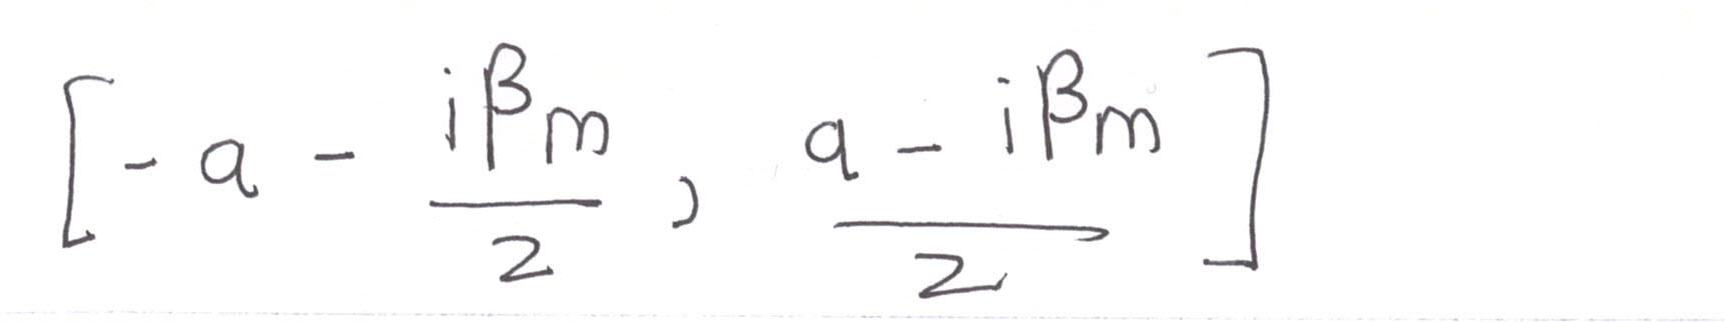 \left[ - a - \frac{i \beta_m}{2}, \frac{a - i \beta_m}{2} \right]